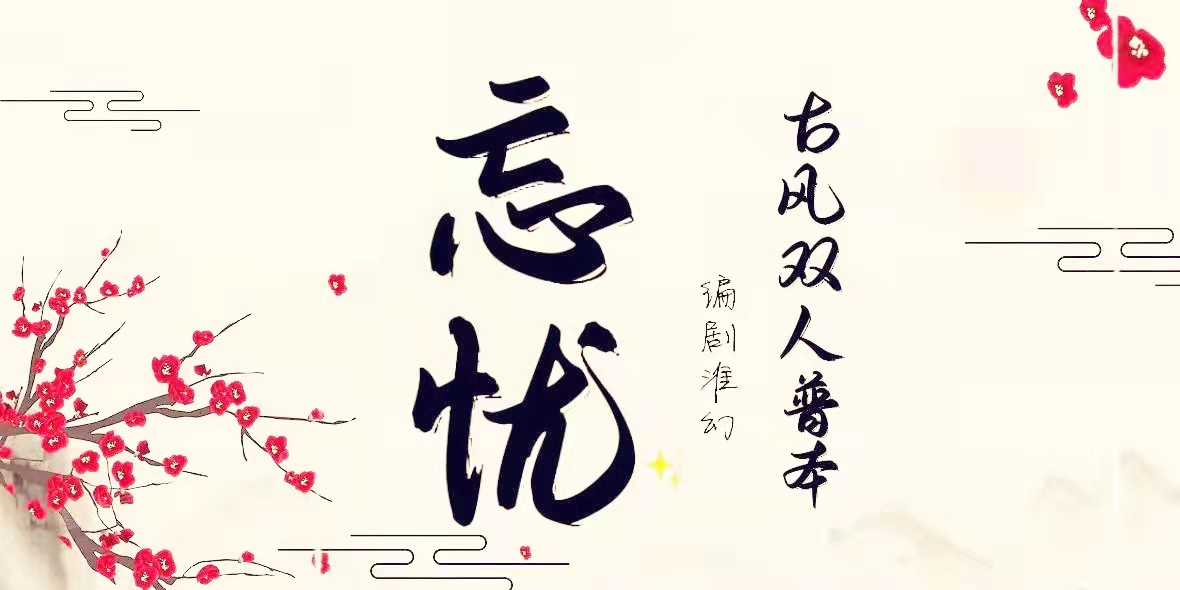 古风双人普本
编剧淮幻
忘忧